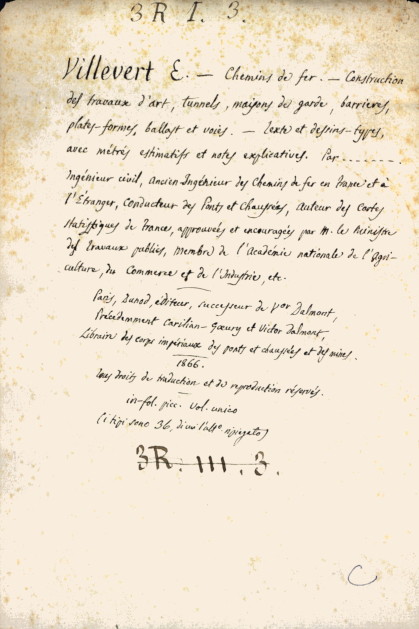 3 R I. 3.
Villevert E. — Chemins de fer. — Construction
des travaux d'art, tunnels, maisons de garde, barrières,
plates-formes, ballast et voies. — Texte et dessins-types,
avec métrés estimatifs et notes explicatives. Par ........
Ingénieur civil, ancien Ingénieur des Chemins de fer en France et à
l'Étranger, Conducteur des Ponts et Chaussées, Auteur des Cartes
statistiques de France, approuvées et encouragées par M. le Ministre
des Travaux publics, Membre de l'Académie nationale de l'Agri-
culture, du Commerce et de l'Industrie, etc.
Paris, Dunod, éditeur, successeur de Vor Dalmont,
Précédemment Carilian-Gœury et Victor Dalmont,
Libraire des corps impériaux des ponts et chaussées et des mines.
1866.
Tous droits de traduction et de reproduction réservés.
in-fol. picc. vol. unico
(i tipi sono 36, di cui l'alt° ripiegato)
3R. III. 3.
C